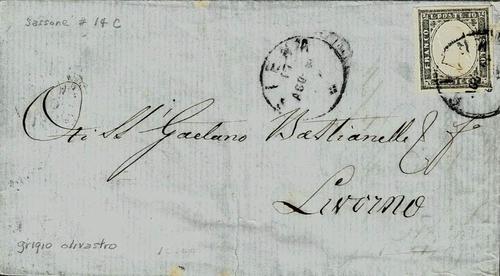 Sassone # 14 C
FRANCO
POSTE
SIENA
AGO
Gaetano Bastianelli & f
Livorno
grigio olivastro